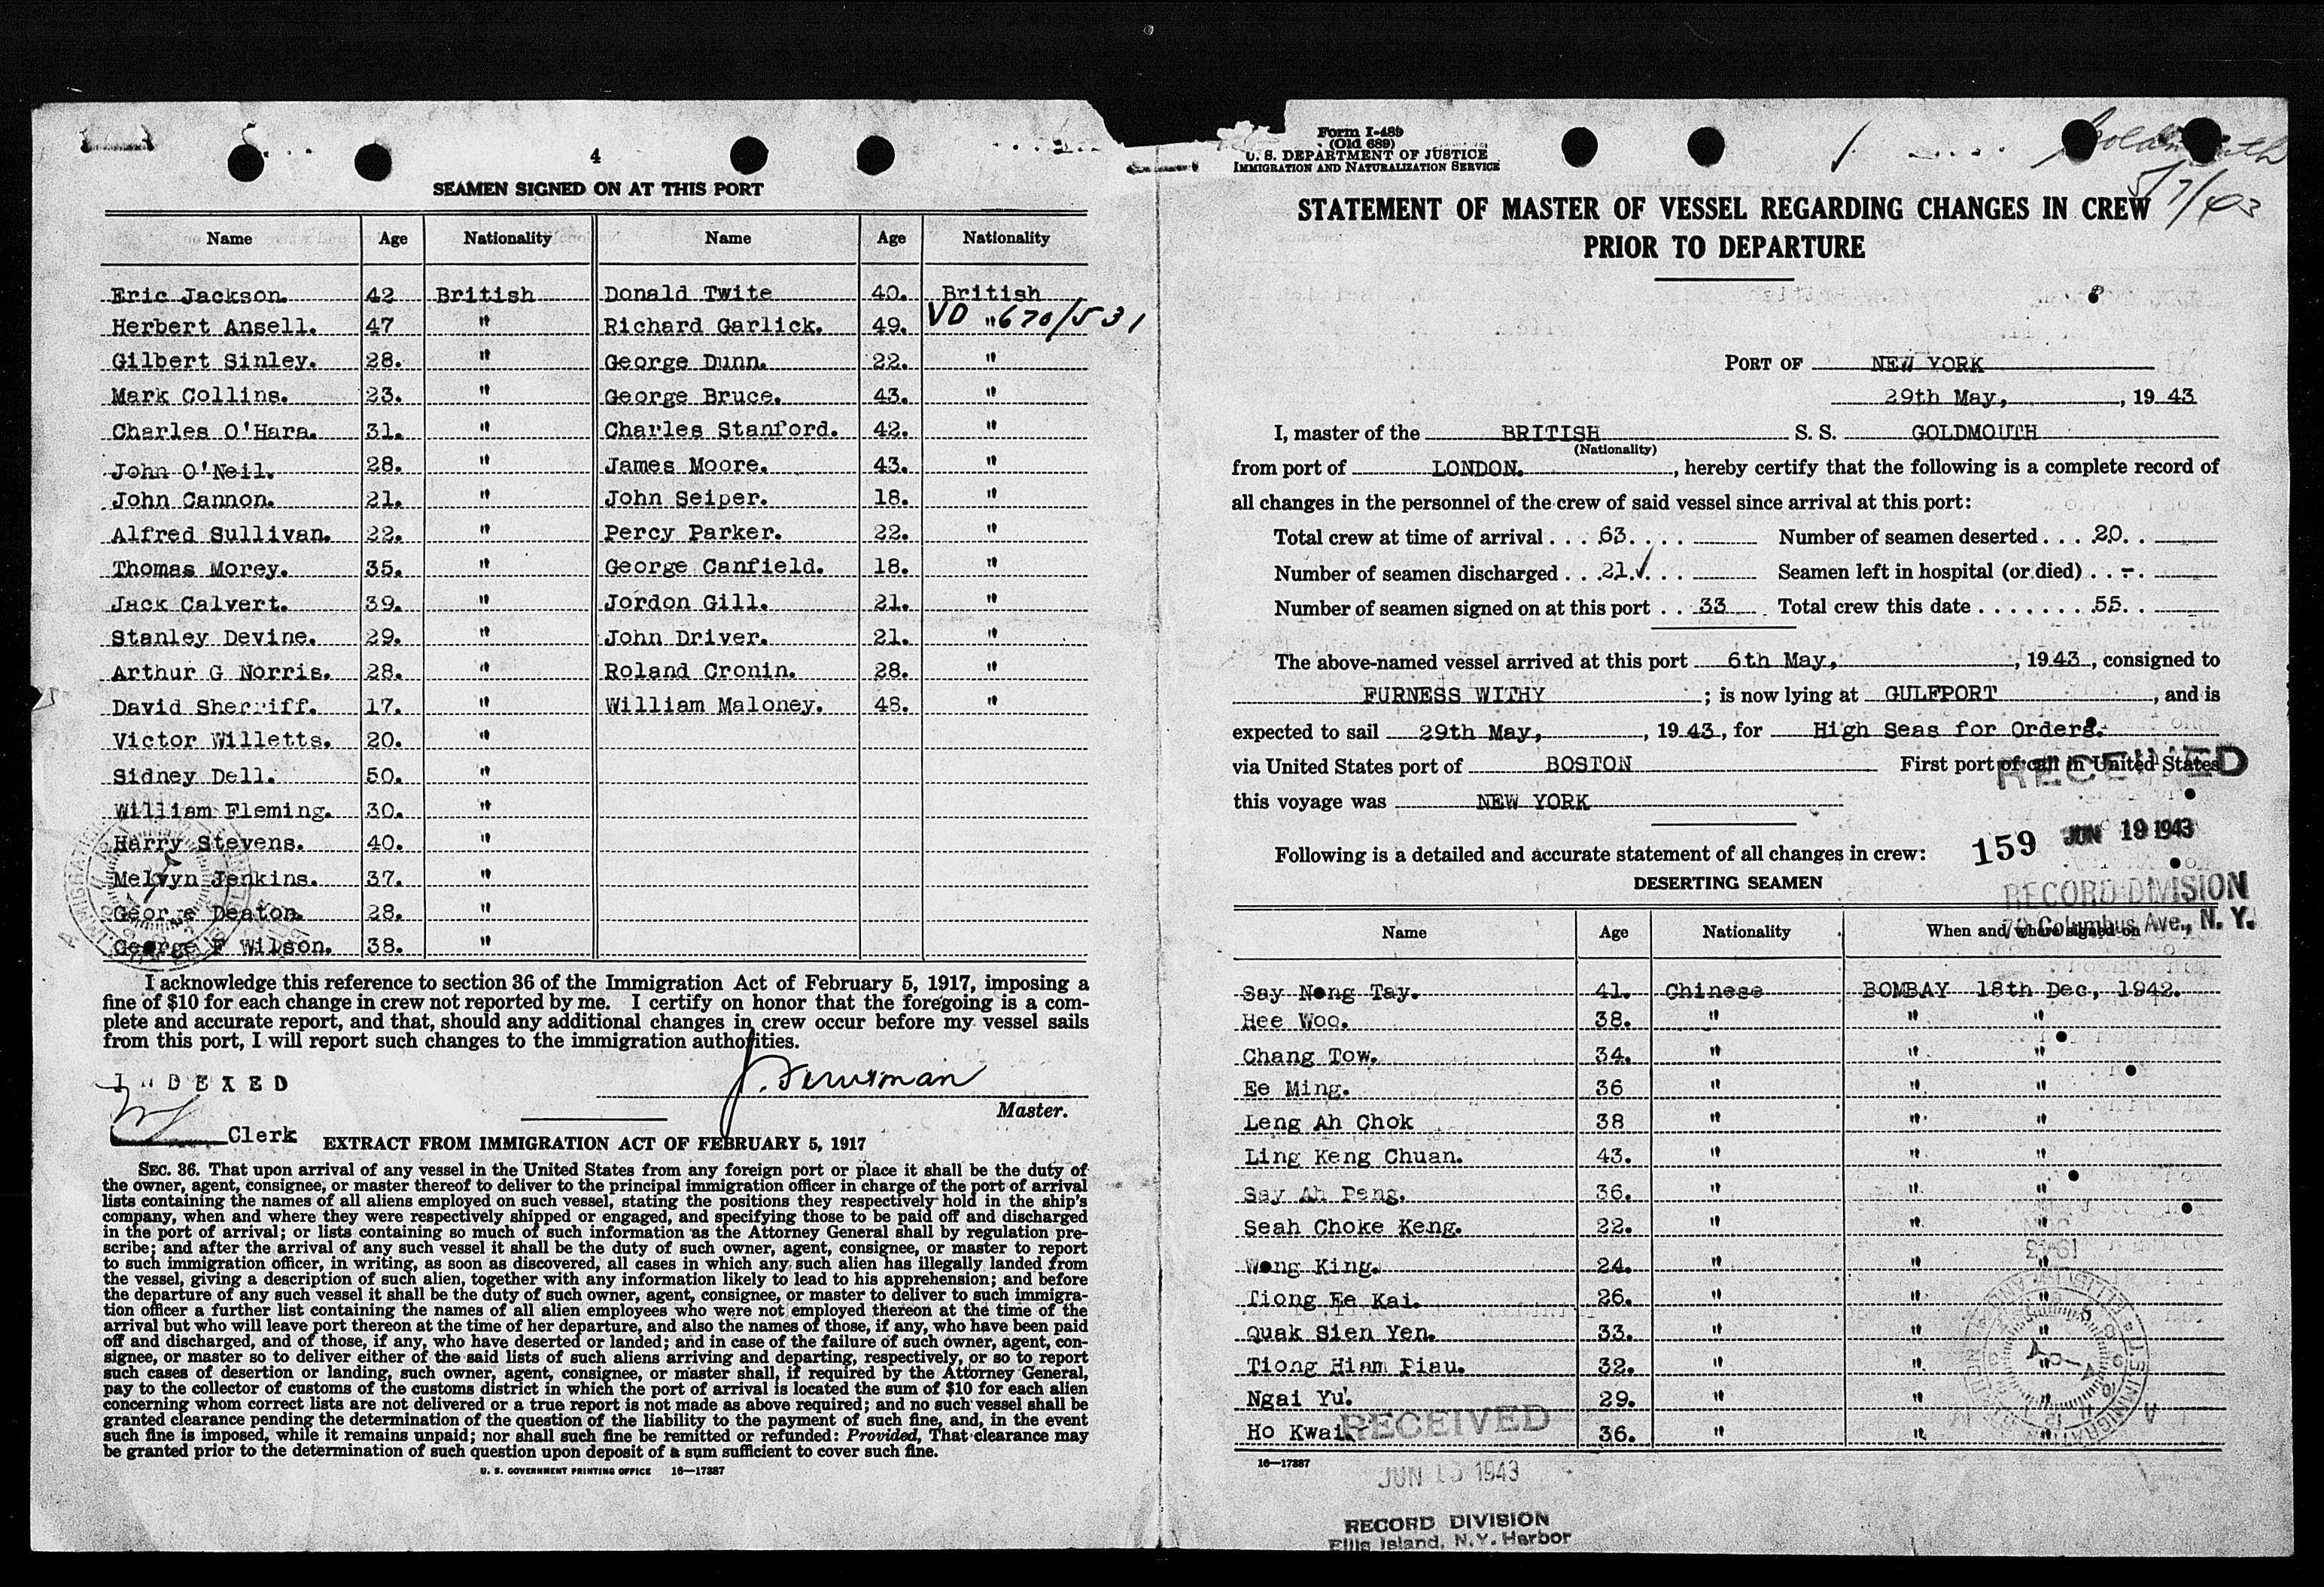 4
SEAMEN SIGNED ON AT THIS PORT
Name Age Nationality Name Age Nationality
Eric Jackson. 42 British Donald Twite 40. British
Herbert Ansell. 47 " Richard Garlick. 49. VD " 670/531
Gilbert Sinley. 28. " George Dunn. 22. "
Mark Collins. 23. " George Bruce. 43. "
Charles O'Hara. 31. " Charles Stanford. 42. "
John O'Neil. 28. " James Moore. 43. "
John Cannon. 21. " John Seiper. 18. "
Alfred Sullivan. 22. " Percy Parker. 22. "
Thomas Morey. 35. " George Canfield. 18. "
Jack Calvert. 39. " Jordon Gill. 21. "
Stanley Devine. 29. " John Driver. 21. "
Arthur G Norris. 28. " Roland Cronin. 28. "
David Sherriff. 17. " William Maloney. 48. "
Victor Willetts. 20. "
Sidney Dell. 50. "
William Fleming. 30. "
Harry Stevens. 40. "
Melvyn Jenkins. 37. "
George Deaton. 28. "
George F Wilson. 38. "
I acknowledge this reference to section 36 of the Immigration Act of February 5, 1917, imposing a
fine of $10 for each change in crew not reported by me. I certify on honor that the foregoing is a com-
plete and accurate report, and that, should any additional changes in crew occur before my vessel sails
from this port, I will report such changes to the immigration authorities.
INDEXED
Master.
Clerk
EXTRACT FROM IMMIGRATION ACT OF FEBRUARY 5, 1917
SEC. 36. That upon arrival of any vessel in the United States from any foreign port or place it shall be the duty of
the owner, agent, consignee, or master thereof to deliver to the principal immigration officer in charge of the port of arrival
lists containing the names of all aliens employed on such vessel, stating the positions they respectively hold in the ship's
company, when and where they were respectively shipped or engaged, and specifying those to be paid off and discharged
in the port of arrival; or lists containing so much of such information as the Attorney General shall by regulation pre-
scribe; and after the arrival of any such vessel it shall be the duty of such owner, agent, consignee, or master to report
to such immigration officer, in writing, as soon as discovered, all cases in which any such alien has illegally landed from
the vessel, giving a description of such alien, together with any information likely to lead to his apprehension; and before
the departure of any such vessel it shall be the duty of such owner, agent, consignee, or master to deliver to such immigra-
tion officer a further list containing the names of all alien employees who were not employed thereon at the time of the
arrival but who will leave port thereon at the time of her departure, and also the names of those, if any, who have been paid
off and discharged, and of those, if any, who have deserted or landed; and in case of the failure of such owner, agent, con-
signee, or master so to deliver either of the said lists of such aliens arriving and departing, respectively, or so to report
such cases of desertion or landing, such owner, agent, consignee, or master shall, if required by the Attorney General,
pay to the collector of customs of the customs district in which the port of arrival is located the sum of $10 for each alien
concerning whom correct lists are not delivered or a true report is not made as above required; and no such vessel shall be
granted clearance pending the determination of the question of the liability to the payment of such fine, and, in the event
such fine is imposed, while it remains unpaid; nor shall such fine be remitted or refunded: Provided, That clearance may
be granted prior to the determination of such question upon deposit of a sum sufficient to cover such fine.
U. S. GOVERNMENT PRINTING OFFICE 16—17387
Form I-489
(Old 689)
U. S. DEPARTMENT OF JUSTICE
IMMIGRATION AND NATURALIZATION SERVICE
Goldmouth
5/7/43
STATEMENT OF MASTER OF VESSEL REGARDING CHANGES IN CREW
PRIOR TO DEPARTURE
PORT OF NEW YORK
29th May, , 19 43
I, master of the BRITISH S. S. GOLDMOUTH
(Nationality)
from port of LONDON. , hereby certify that the following is a complete record of
all changes in the personnel of the crew of said vessel since arrival at this port:
Total crew at time of arrival . . . 63. . . . Number of seamen deserted . . . 20. .
Number of seamen discharged . . . 21. ✓ . . Seamen left in hospital (or died) . . -. .
Number of seamen signed on at this port . . 33 . Total crew this date . . . . . . . 55. .
The above-named vessel arrived at this port 6th May, , 19 43 , consigned to
FURNESS WITHY ; is now lying at GULFPORT , and is
expected to sail 29th May, , 19 43 , for High Seas for Orders.
via United States port of BOSTON First port of call in United States
this voyage was NEW YORK
RECEIVED
159 JUN 19 1943
RECORD DIVISION
70 Columbus Ave., N. Y.
Following is a detailed and accurate statement of all changes in crew:
DESERTING SEAMEN
Name Age Nationality When and where signed on
Say Nong Tay. 41. Chinese BOMBAY 18th Dec, 1942.
Hee Woo. 38. " " "
Chang Tow. 34. " " "
Ee Ming. 36 " " "
Leng Ah Chok 38 " " "
Ling Keng Chuan. 43. " " "
Say Ah Peng. 36. " " "
Seah Choke Keng. 22. " " "
Wong King. 24. " " "
Tiong Ee Kai. 26. " " "
Quak Sien Yen. 33. " " "
Tiong Hiam Piau. 32. " " "
Ngai Yu. 29. " " "
Ho Kwai. 36. " " "
16—17387
RECEIVED
JUN 15 1943
RECORD DIVISION
Ellis Island, N.Y. Harbor